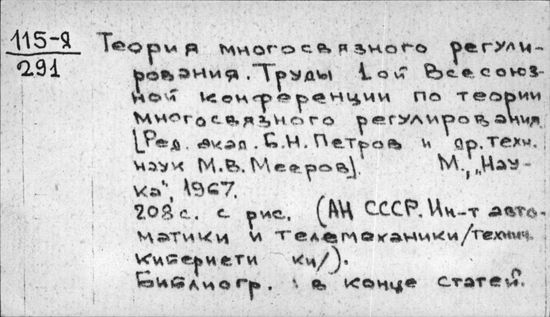 115-Я
291
Теория многосвязного регули-
рования. Труды 1ой Всесоюз-
ной конференции по теории
многосвязного регулирования
[Ред. акад. Б.Н. Петров и др. техн.
наук М.В. Мееров]. М., „Нау-
ка", 1967.
208 с. с рис. (АН СССР. Ин-т авто-
матики и телемеханики/технич.
кибернети ки/).
Библиогр. в конце статей.